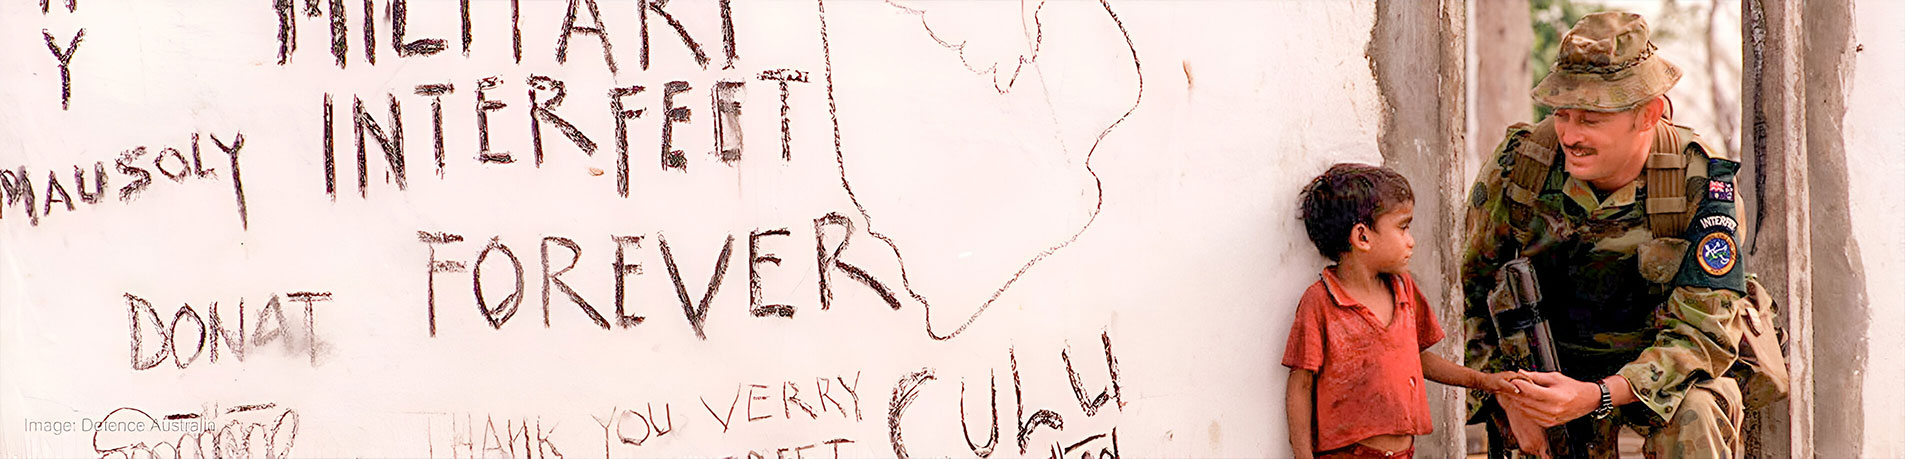 Y
MILITARI
INTERFEET
FOREVER
MAUSOLY
DONAT
THANK YOU VERRY
CULU
Image: Defence Australia